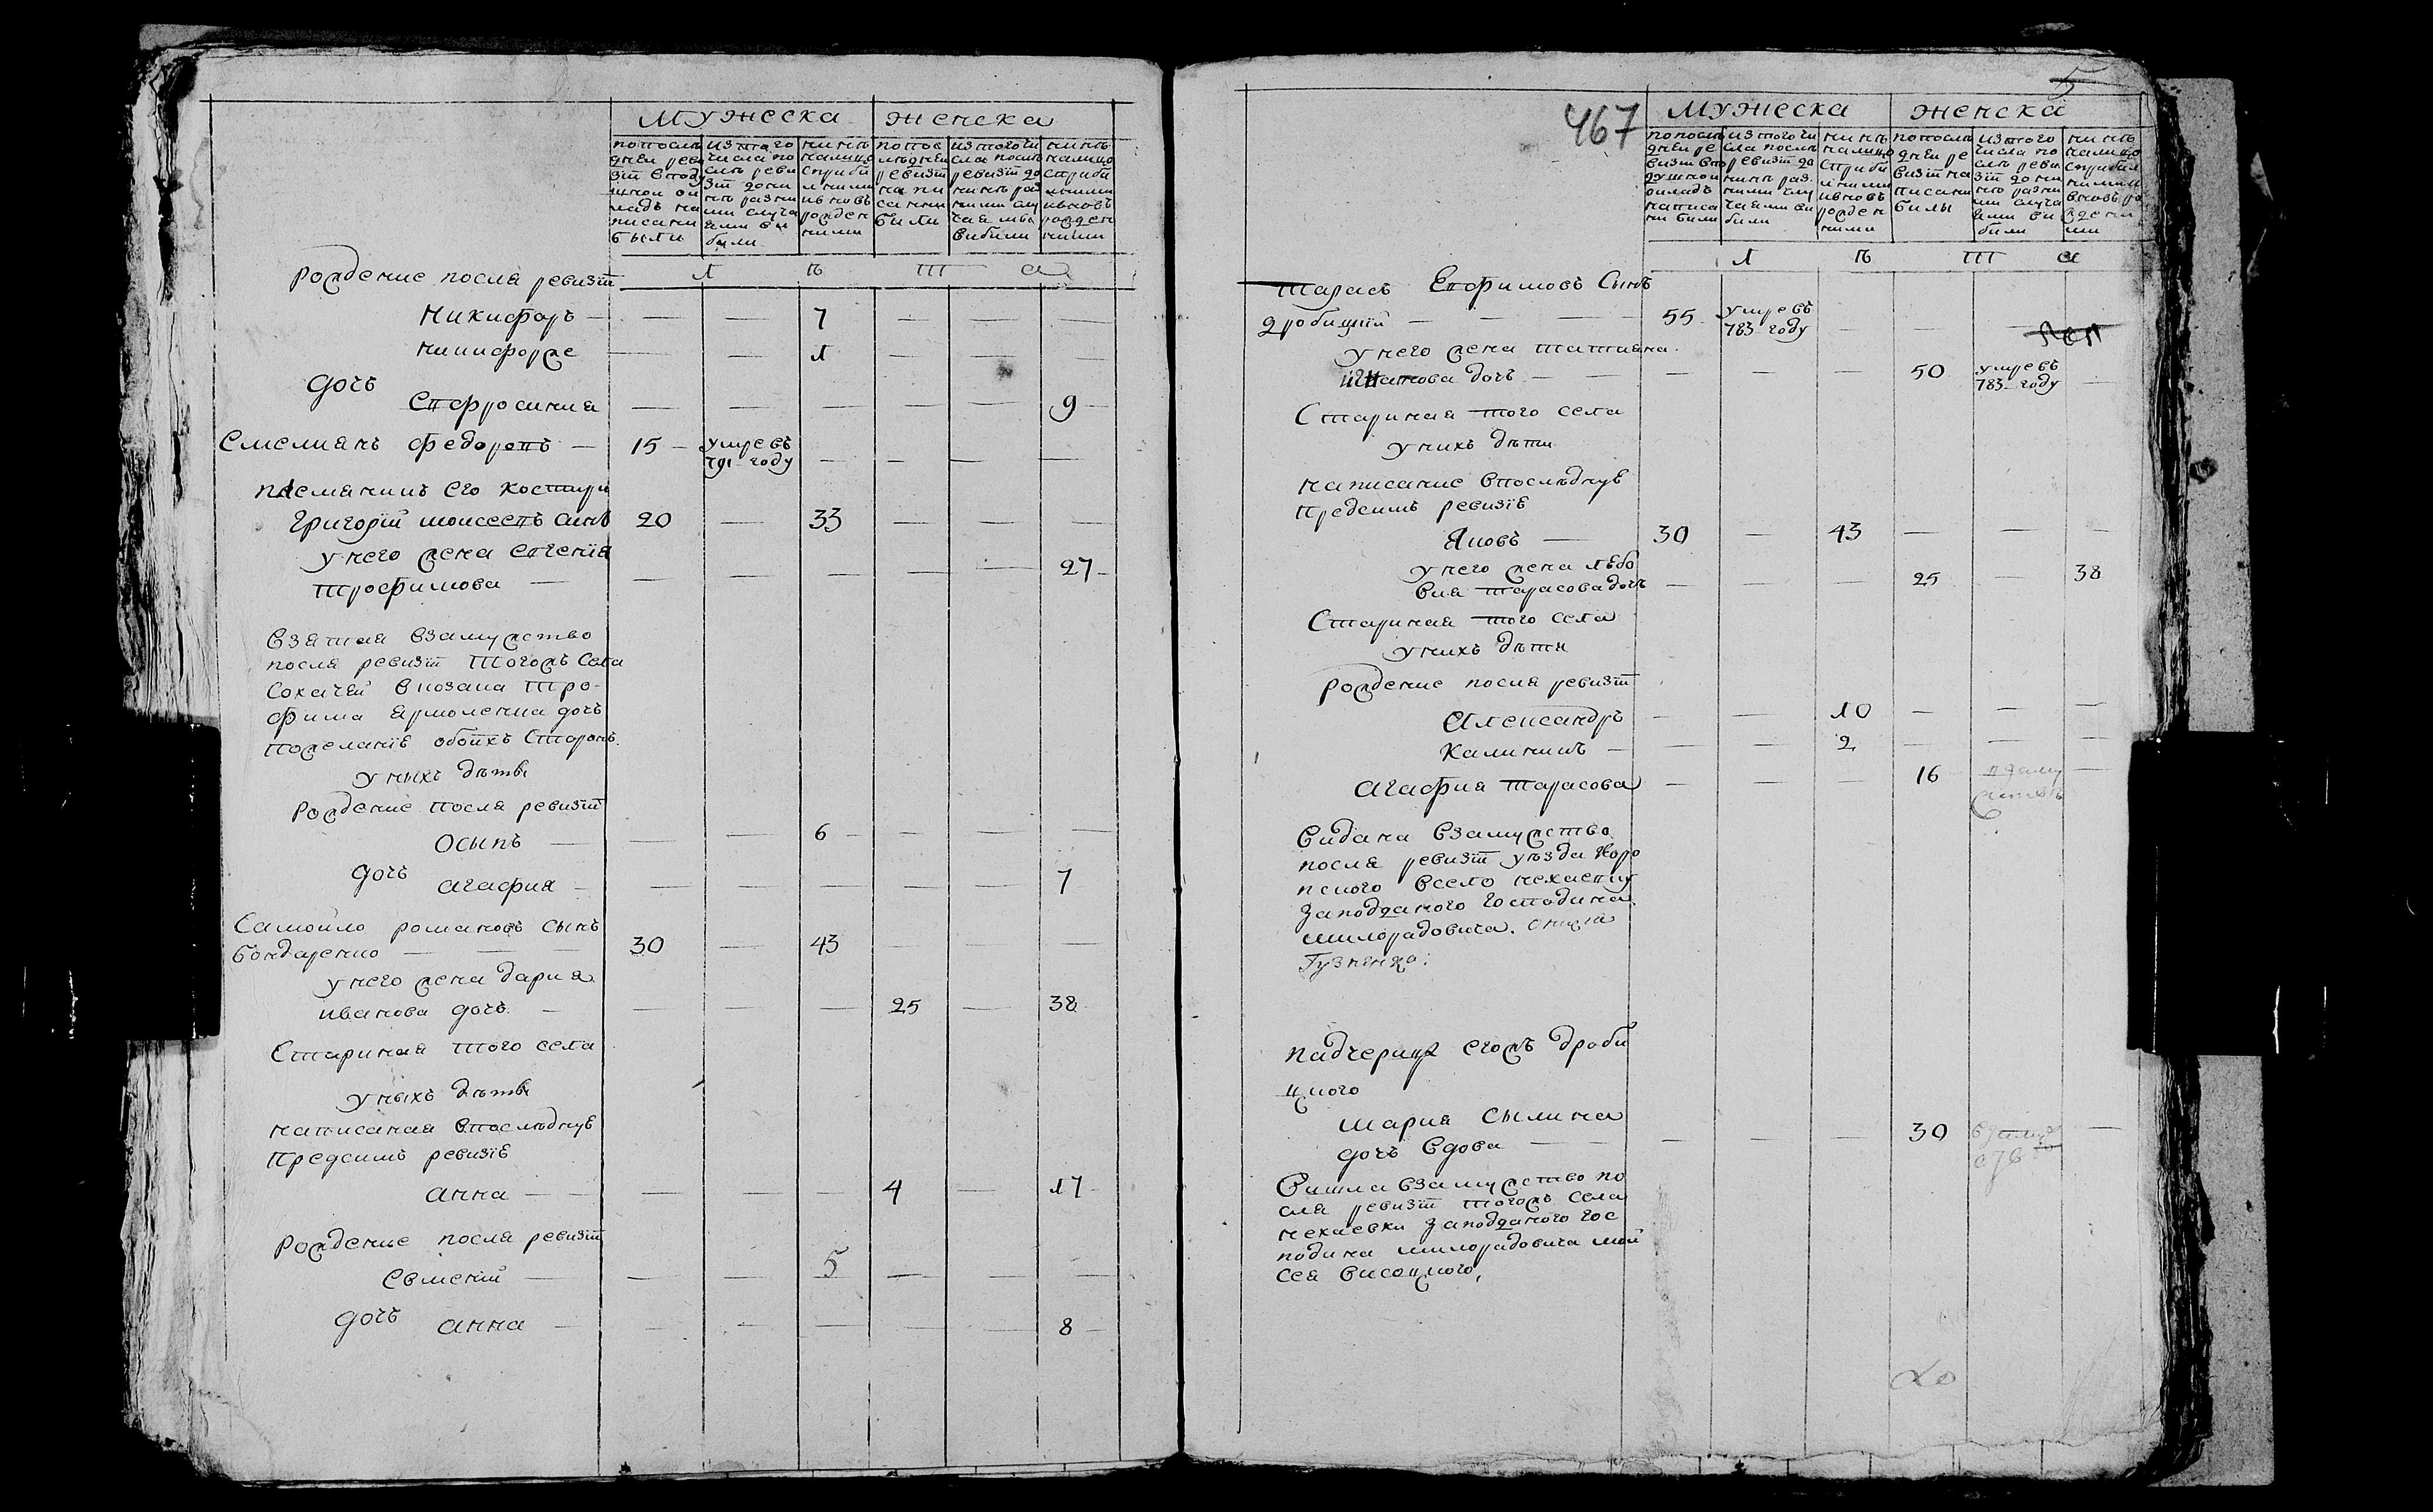 мужеска женска
по после
дней реви
зіи в поду
шной ок
ладъ на
писани
были
из того
числа по
слѣ реви
зіи до ни
нѣ разни
ми случа
ями вы
были
ни нѣ
налицо
с прибы
лними
и вновь
рожден
ними
по пос
лѣдней
ревизіи
на пи
санни
были
из того чи
сла послѣ
ревизіи до
ни нѣ раз
ними слу
чая мы
вибили
ни нѣ
налицо
с приби
лними
и вновь
рожден
ними
л ѣ т а
рождение после ревизіи
Никифоръ — — — 7 — — —
— — 1 — — —
дочь
Евфросиния — — — — — 9
Емелианъ Федоровъ — 15 — умре въ
791 году — — — —
племянникъ его
Григорій Моисеевъ синъ 20 — 33 — — —
у него жена Евгения
Трофимова — — — — — — 27
взятая в замужство
после ревизіи тогожъ села
козака Тро-
фима Ярмоленка дочь
по желаніе обоихъ сторонъ.
у ныхъ дѣти
рождение после ревизіи
Осыпъ — — — 6 — — —
дочь Агафия — — — — — — 7
Самойло романовъ сынъ
бондаренко — 30 — 43 — — —
у него жена Дария
иванова дочь. — — — — 25 — 38
Старинная того села
у ныхъ дѣти
написаная в последнуе
предсимъ ревизіе
анна — — — — 4 — 17
рожденые после ревизіи
— — — 5 — — —
дочь анна — — — — — — 8
467
5
мужеска женска
по после
дней ре
визіи в по
душной
окладъ
написа
ни били
из того чи
сла послѣ
ревизіи до
нинѣ раз
ними слу
чаями ви
били
ни нѣ
налицо
с приби
лними
и вновь
рожден
ними
по после
дней ре
визіи на
писани
билы
из того
числа по
слѣ реви
зіи до ни
нѣ разни
ми случа
ями ви
били
ни нѣ
налицо
с прибил
ними и
вновь ро
жденни
ми
л ѣ т а
тарасъ Евфимовъ Синъ
дробицкій — — — 55 умре въ
783 году — — —
у него жена татияна
дочь — — — — — 50 умре въ
783 году —
Старинная того села
у нихъ дѣти
написание в последнуе
предсимъ ревизіе
Яковъ — 30 — 43 — — —
у него жена
тарасова дочь — — — 25 — 38
Старинная того села
у нихъ дѣти
рожденые после ревизіи
Александръ — — 10 — — —
Калинникъ — — — 2 — — —
Агафия тарасова — — — 16 —
видана в замужство
после ревизіи уѣзда
в село нехаевку
за подданого господина
милорадовича.
падчерица егожъ дроби
цкого
мария сылина
дочь вдова — — — — — 30 —
вишла в замужство по
сля ревизіи тогожъ села
нехаевки за подданого гос
подина милорадовича мой
сея висоцкого,